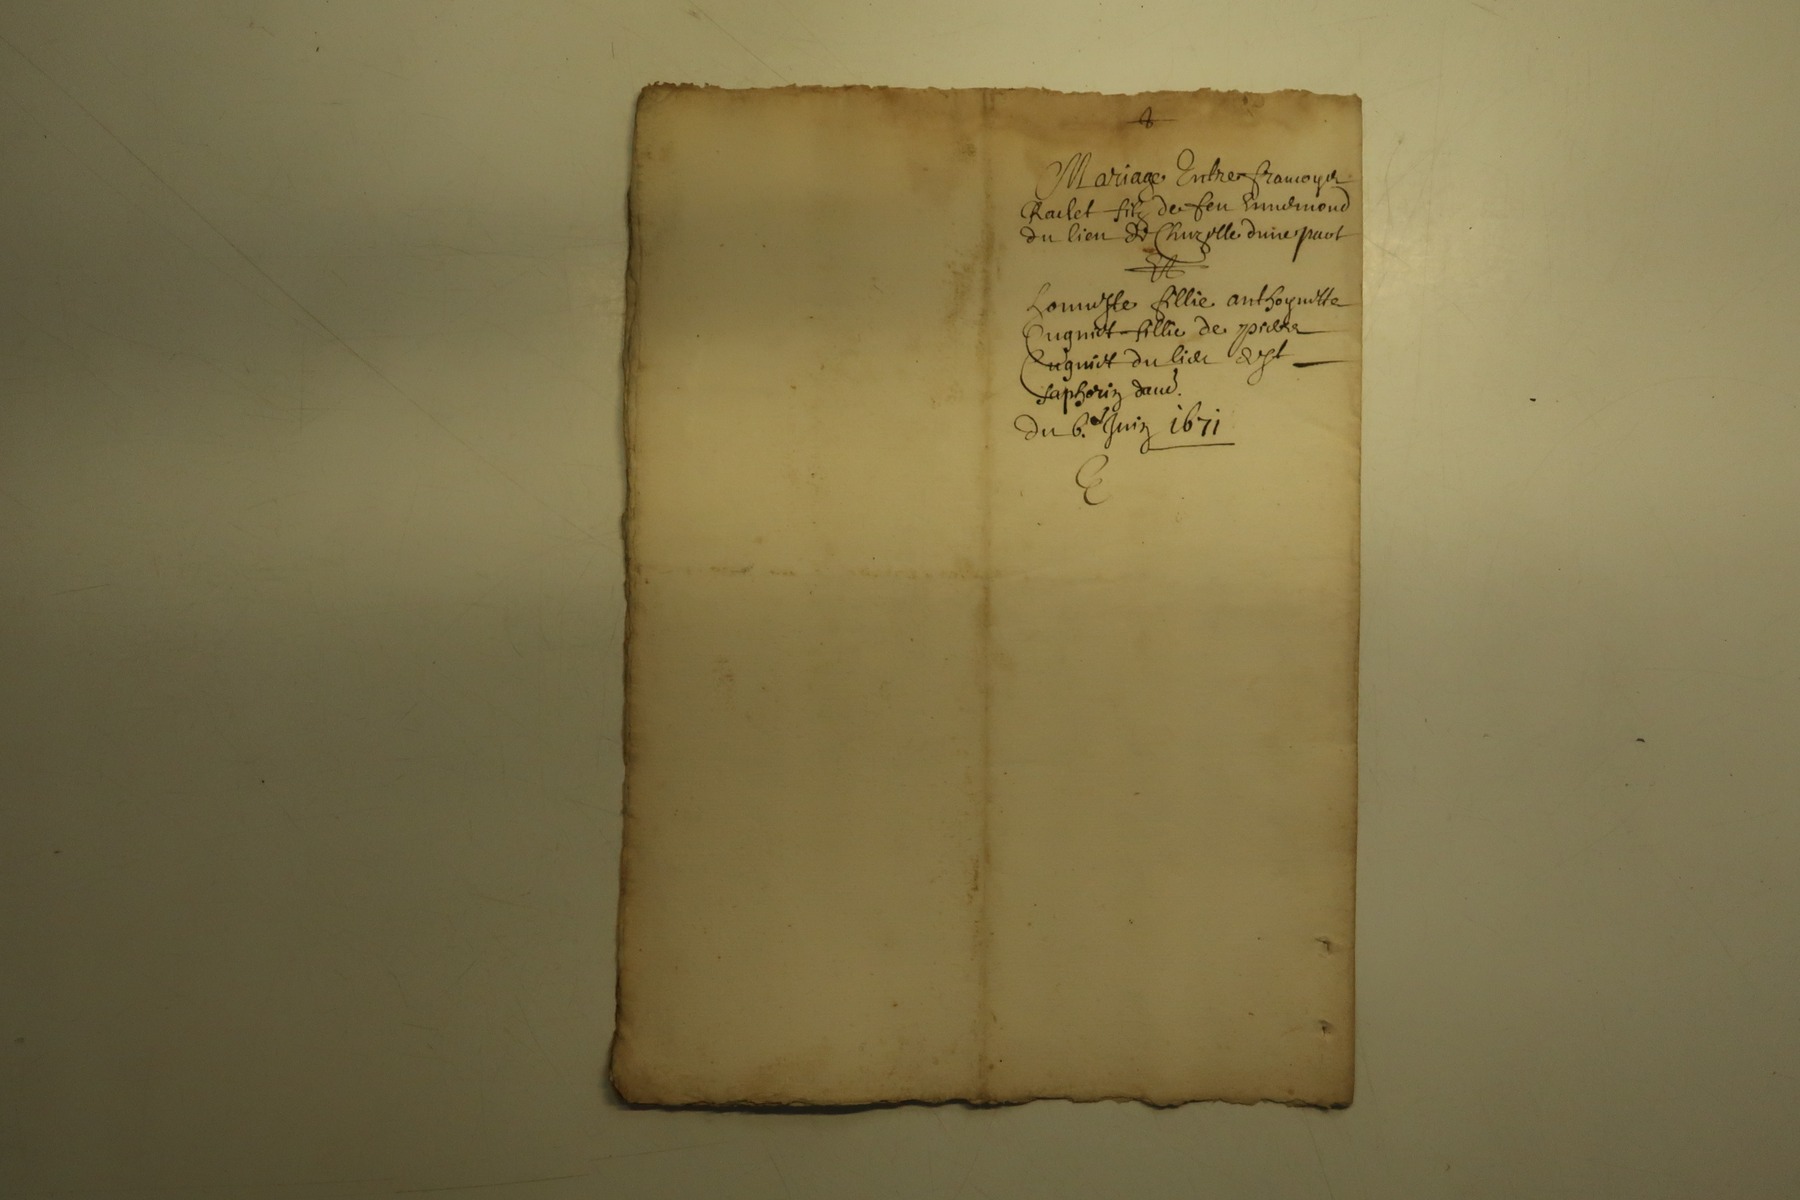 Mariage Entre francoys
Rachet filz de feu Ennemond
du lieu de Chuzelle dune part
Et
honneste fillie anthoynette
Cugniet fillie de pierre
Cugniet du lieu de st
saphorin
du 6.e Juin 1671